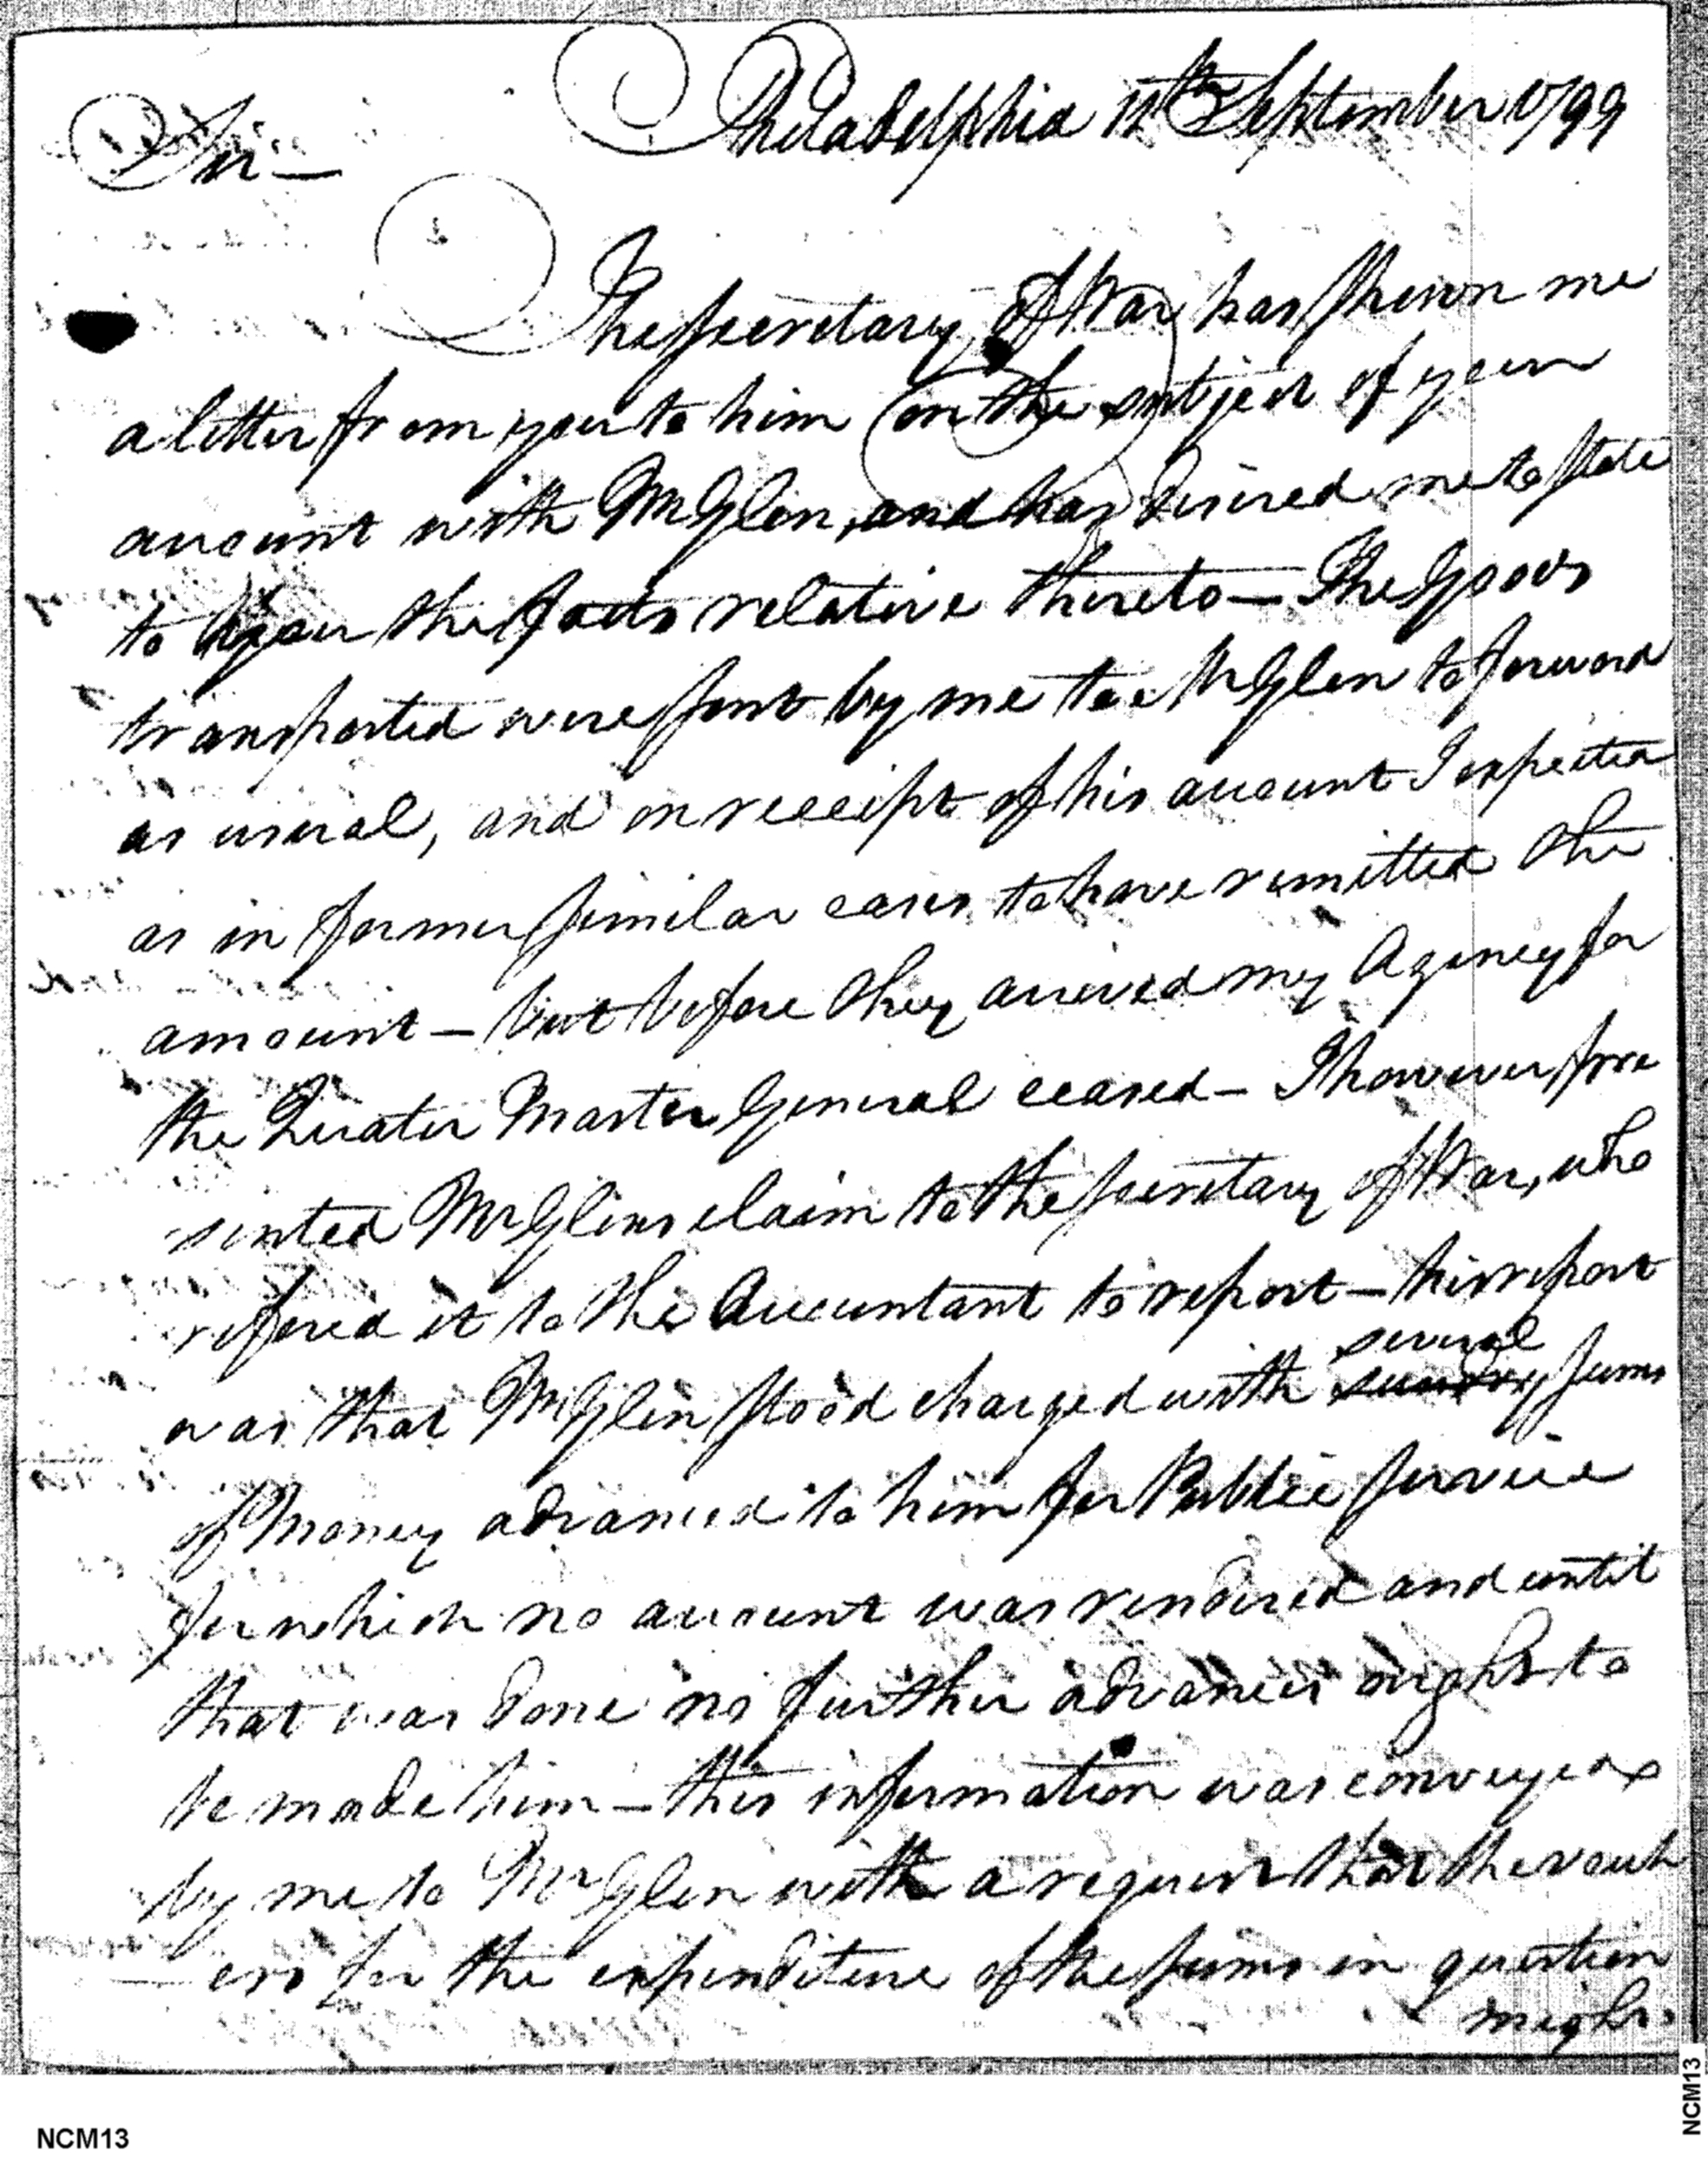 Philadelphia 11th September 1799
Sir —
The Secretary of War has shewn me
a letter from you to him on the subject of your
account with Mr Glen, and has desired me to state
to you the facts relative thereto — The Goods
transported were sent by me to Mr Glen to forward
as usual, and on receipt of his account I expected
as in former similar cases to have remitted the
amount — but before they arrived my Agency for
the Quater Master General ceased — I however pre
sented Mr Glens claim to the Secretary of War, who
refered it to the Accountant to report — his report
several
was that Mr Glen stood charged with sundry sums
of Money advanced to him for Public Service
for which no account was rendered and until
that was done no further advances ought to
be made him — this information was conveyed
by me to Mr Glen with a request that the vouch
ers for the expenditure of the sums in question
might
NCM13
NCM13